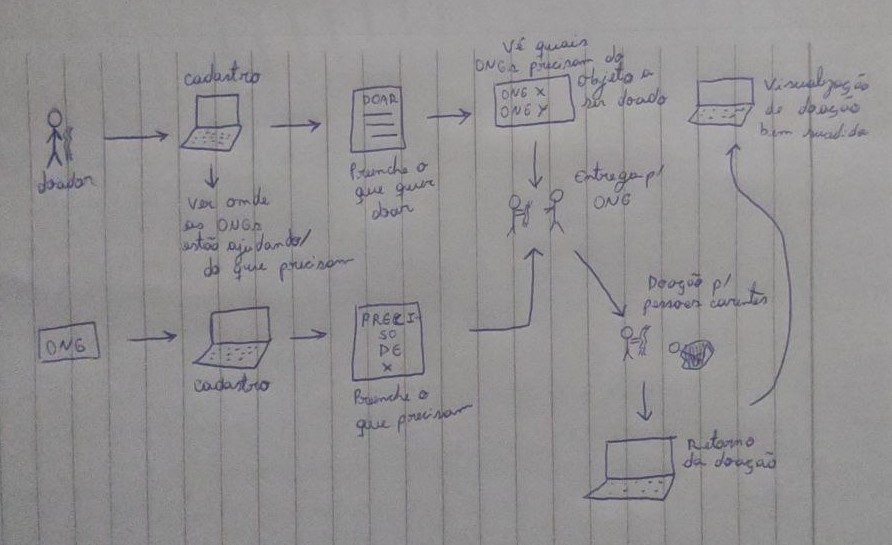 doador
cadastro
Ver onde
as ONGs
estão ajudando/
do que precisam
DOAR
Preenche o
que quer
doar
Vê quais
ONGs precisam do
objeto a
ser doado
ONG X
ONG Y
Entrega p/
ONG
Visualização
de doação
bem sucedida
ONG
cadastro
PRECI-
SO
DE
X
Preenche o
que precisam
Doação p/
pessoas carentes
Retorno
da doação